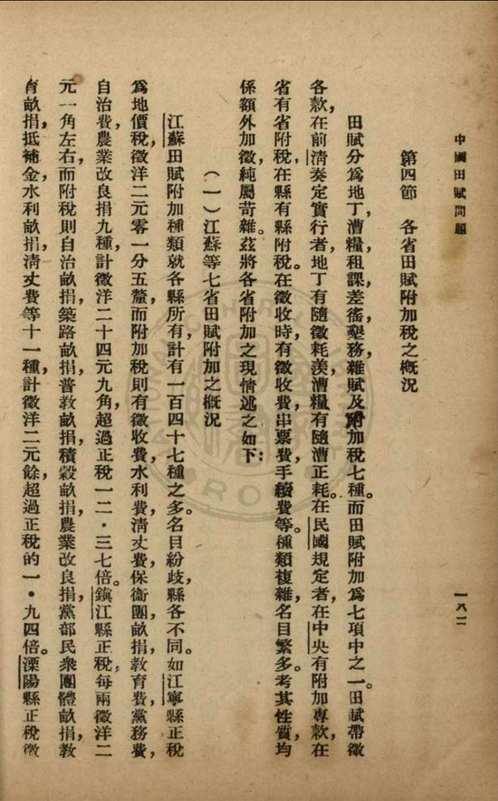 中國田賦問題
一八二
第四節　各省田賦附加稅之概況
田賦分爲地丁，漕糧，租課，差徭，墾務，雜賦及附加稅七種。而田賦附加爲七項中之一。田賦帶徵
各款，在前清奏定實行者，地丁有隨徵耗羨，漕糧有隨漕正耗。在民國規定者，在中央有附加專款，在
省有省附稅，在縣有縣附稅。在徵收時有徵收費，串票費，手續費等。種類複雜，名目繁多。考其性質，均
係額外加徵，純屬苛雜。茲將各省附加之現情述之如下：
（一）江蘇等七省田賦附加之概況
江蘇田賦附加種類，就各縣所有，計有一百四十七種之多。名目紛歧，縣各不同。如江寧縣正稅
爲地價稅，徵洋二元零一分五釐，而附加稅則有徵收費，水利費，清丈費，保衛團，畝捐，教育費，黨務費，
自治費，農業改良捐九種，計徵洋二十四元九角，超過正稅一二·三七倍。鎮江縣正稅，每兩徵洋二
元一角左右，而附稅則自治畝捐，築路畝捐，普教畝捐，積穀畝捐，農業改良捐，黨部民衆團體畝捐，教
育畝捐，抵補金，水利畝捐，清丈費等十一種，計徵洋二元餘，超過正稅的一·九四倍。溧陽縣正稅徵